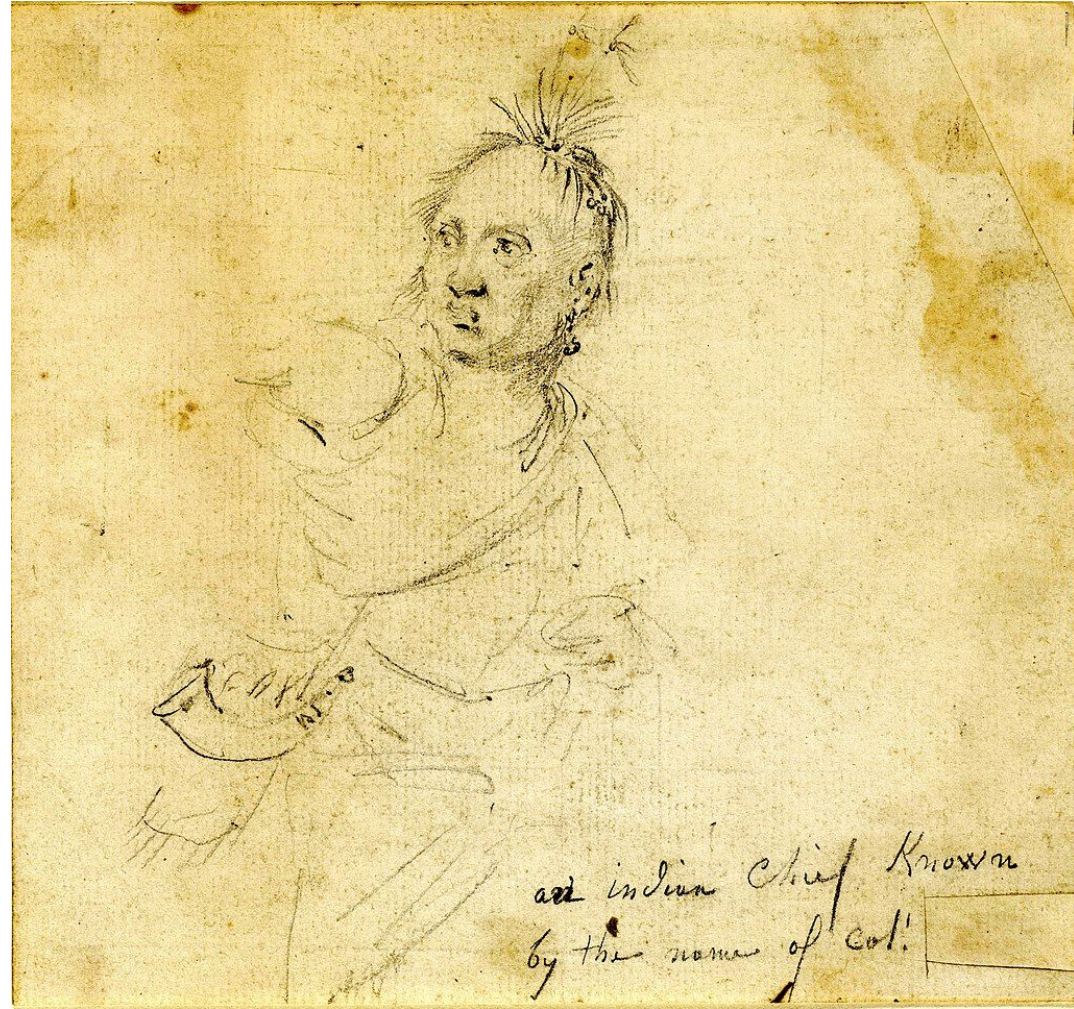 an indian Chief Known
by the name of Col!